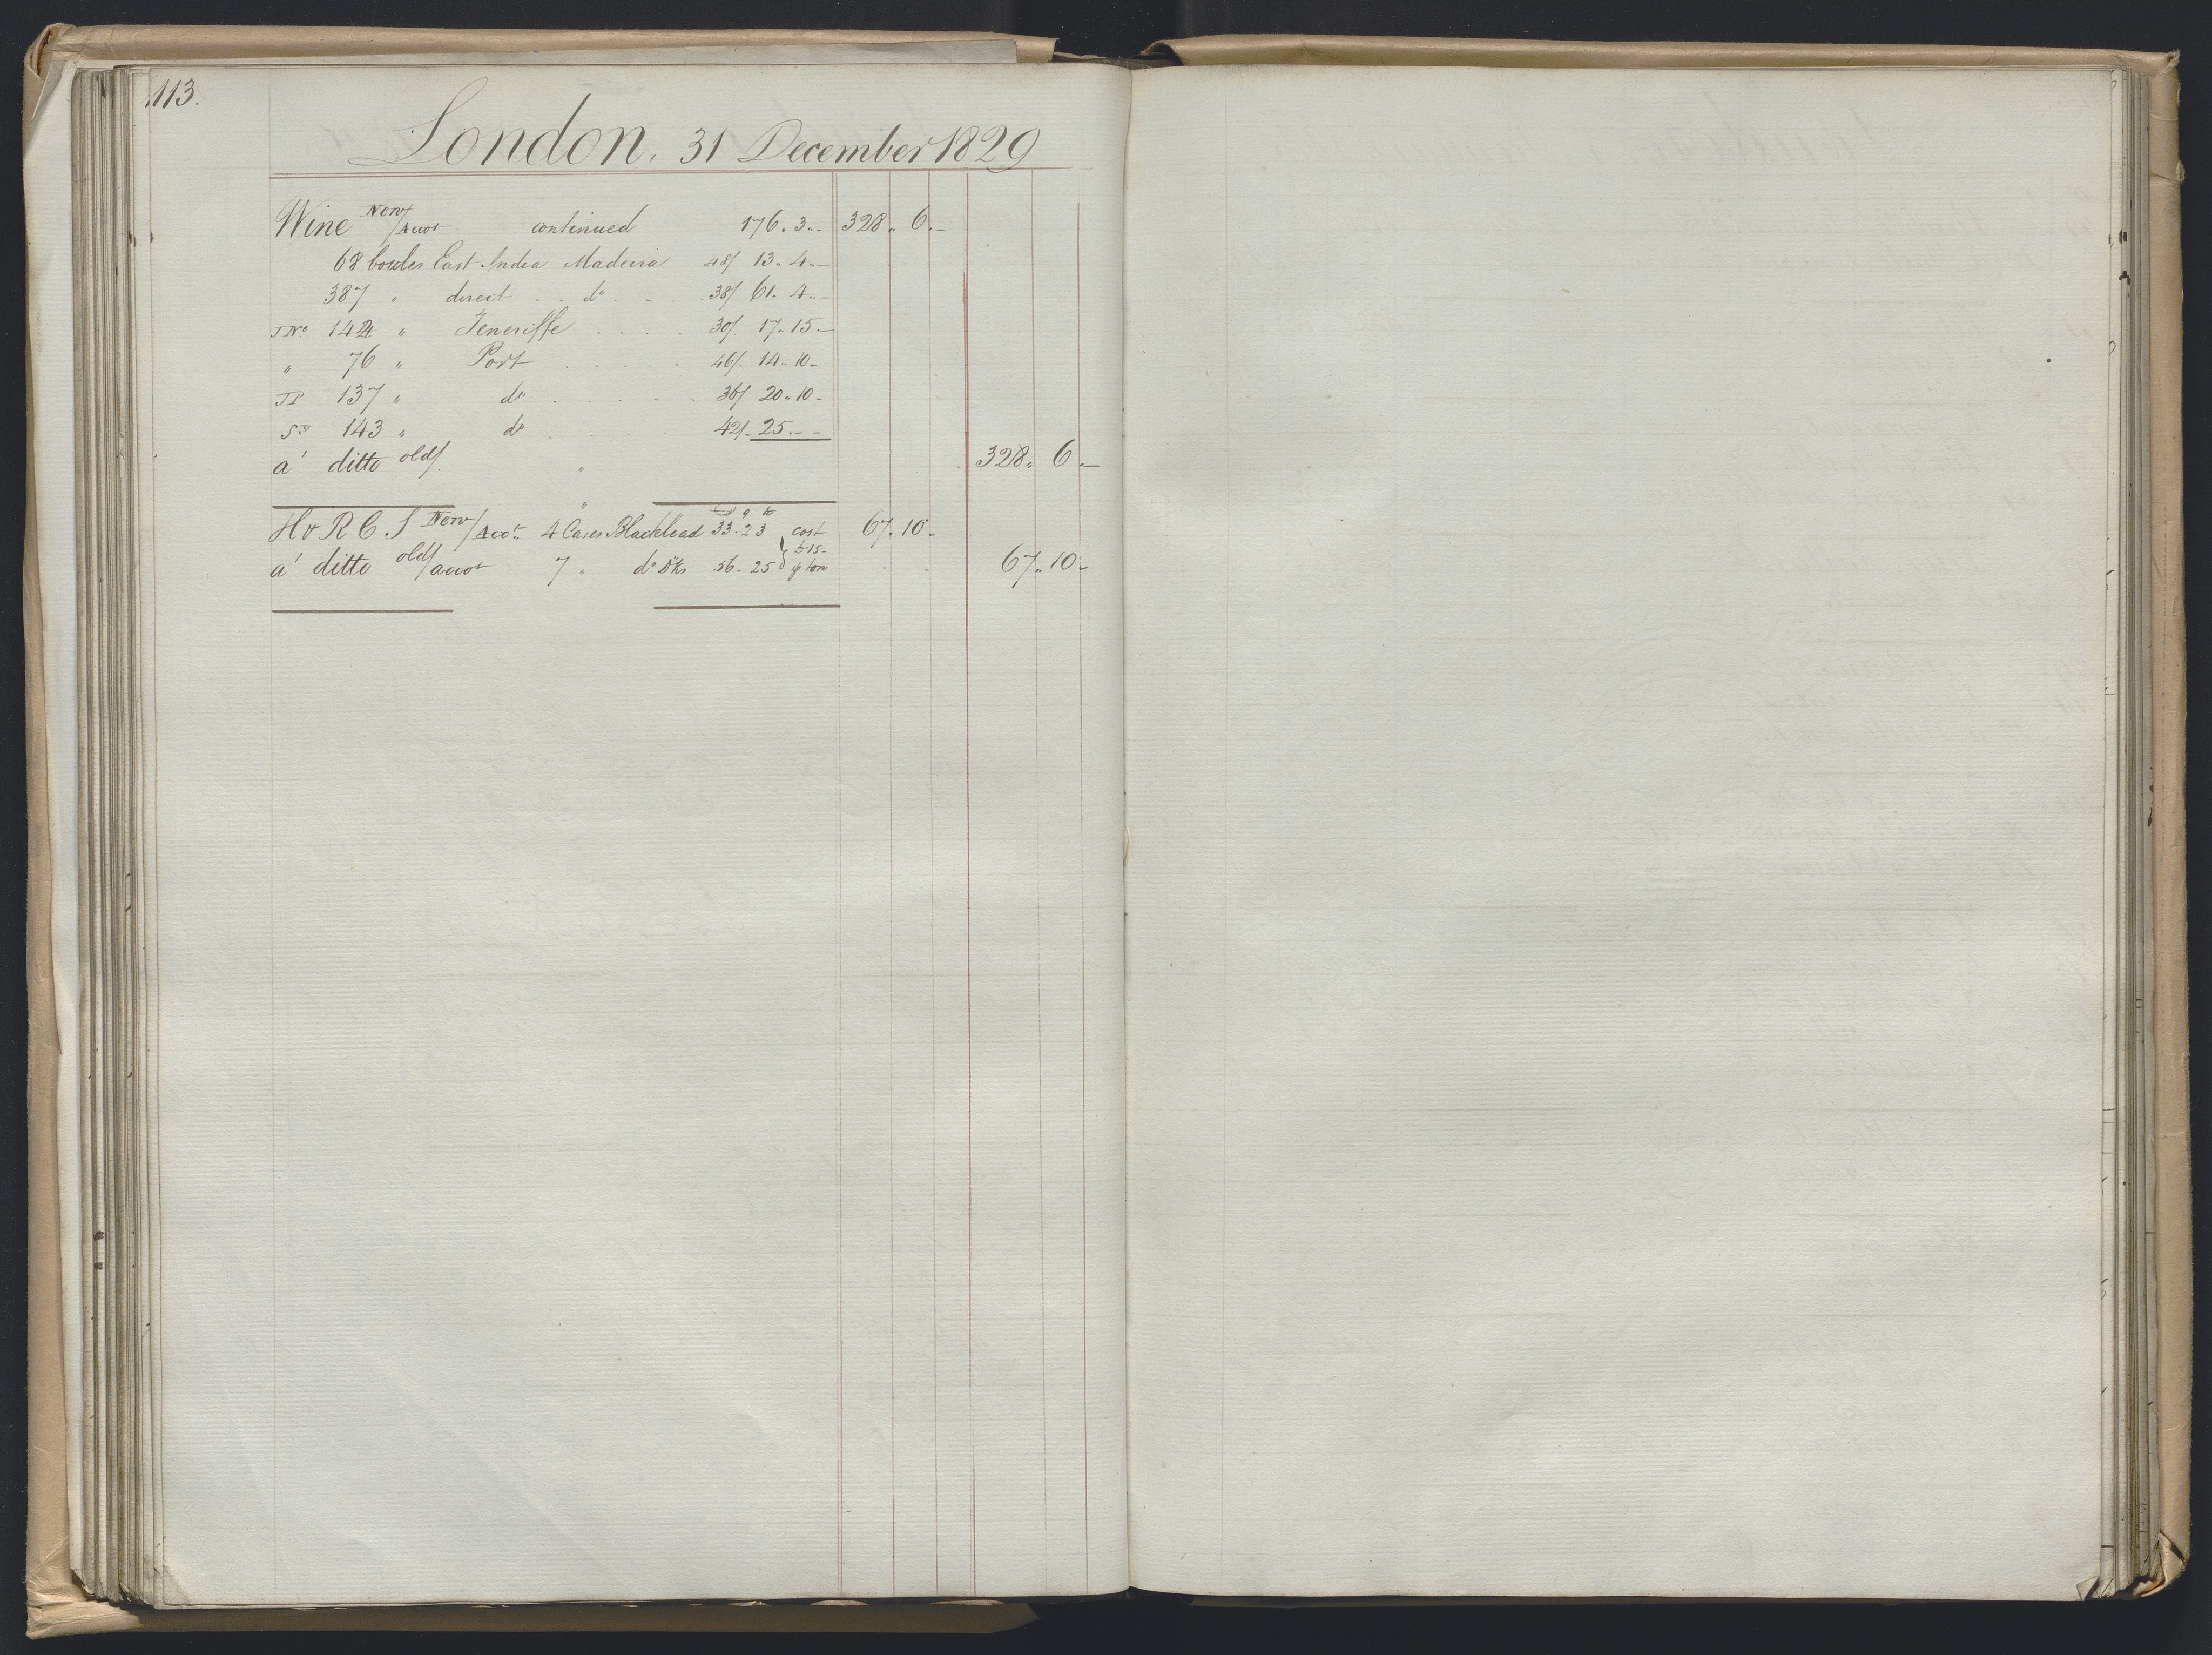 113.
London, 31 December 1829
Wine New/Accot continued 176. 3.- 328. 6.-
68 bottles East India Madeira 48/ 13. 4.-
387 " direct . . do . . . 38/ 61. 4.-
142 " Teneriffe . . . . 30/. 17. 15.-
" 76 " Port . . . . . 46/. 14. 10-
JP 137 " do . . . . . 36/ 20. 10-
143 " do . . . . . 42/- 25.--
a' ditto old/. " 328. 6.-
H & R C. S New/Acct. 4 Cases Blacklead 33. 2 3 cost 67. 10-
£15-
a' ditto old/accot 7 " do 56. 25 ton 67. 10-